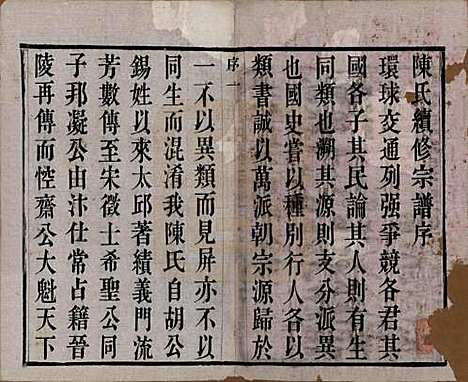 陳氏續修宗譜序
環球交通列强爭競各君其
國各子其民論其人則有生
同類也溯其源則支分派異
也國史嘗以種別行人各以
類書誠以萬派朝宗源歸於
序一
一不以異類而見屏亦不以
同生而混淆我陳氏自胡公
錫姓以來太邱著績義門流
芳數傳至宋徵士希聖公同
子邦凝公由汴仕常占籍晉
陵再傳而悾齋公大魁天下